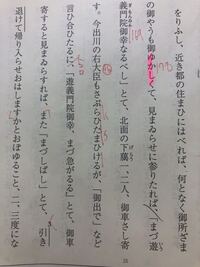 をりふし、近き都の住まひにはべれば、何となく御所ざま
の御やうも御ゆかしくて、見まゐらせに参りたれば、「まづ遊
義門院御幸なるべし」とて、北面の下﨟一、二人、御車さし寄
す。今出川の右大臣もさぶらひたまひけるが、「御出で」など
言ひ合ひたるに、「遊義門院御幸、まづ急がるる」とて、御車
寄すると見まゐらすれば、また「まづしばし」とて、引き
退けて帰り入らせおはしますかとおぼゆること、二、三度にな